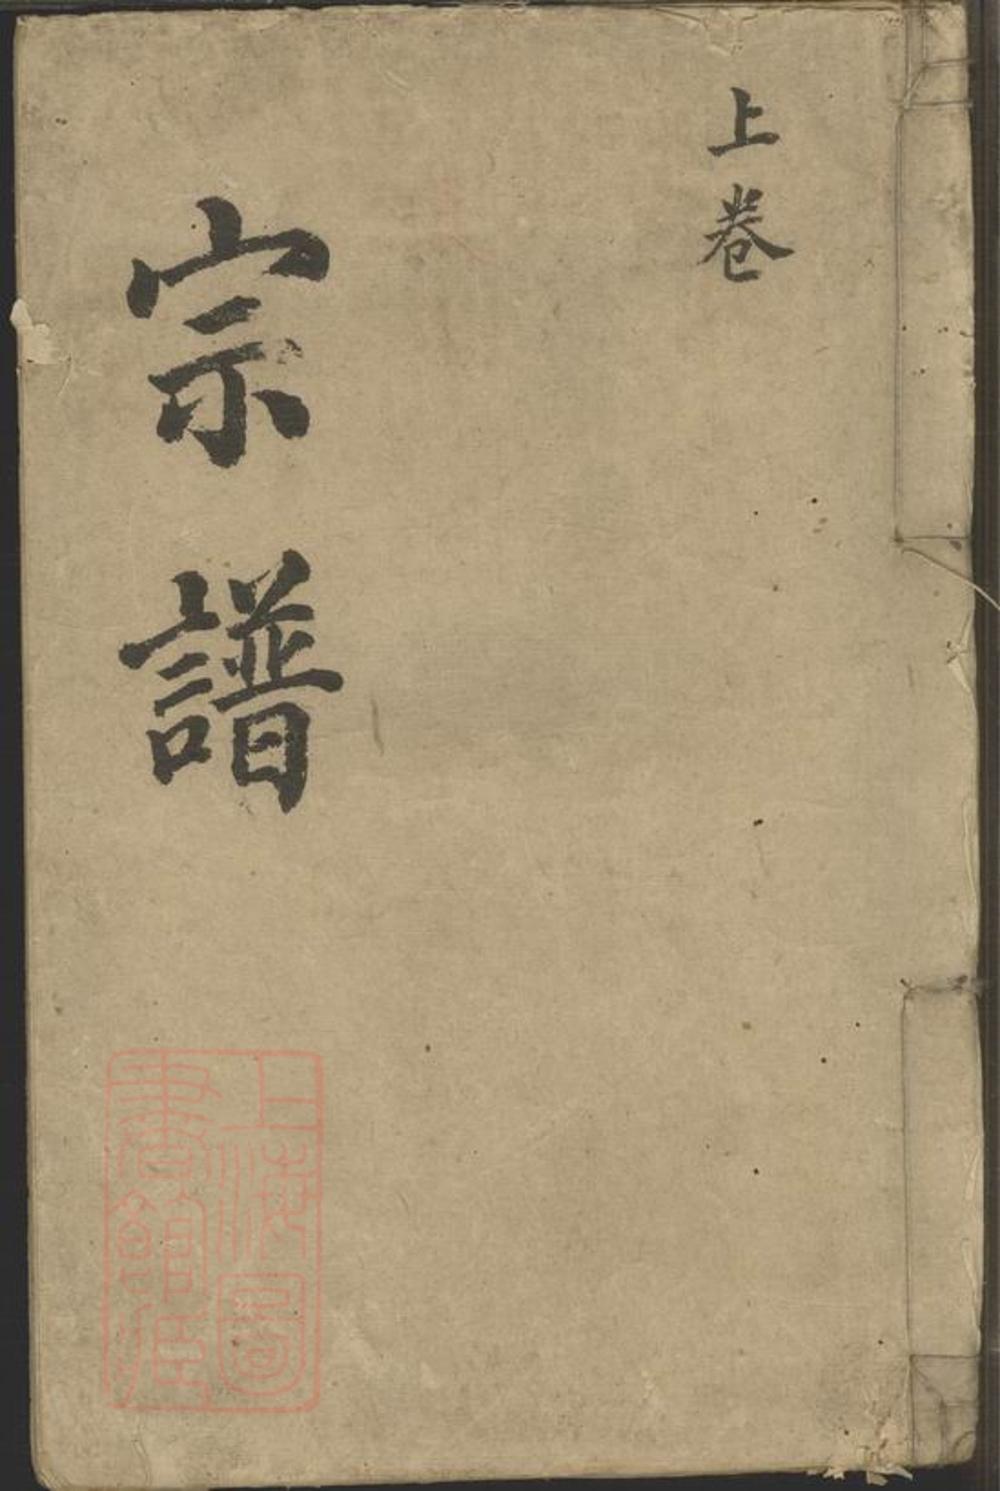 上卷
宗譜
上海圖
書館藏